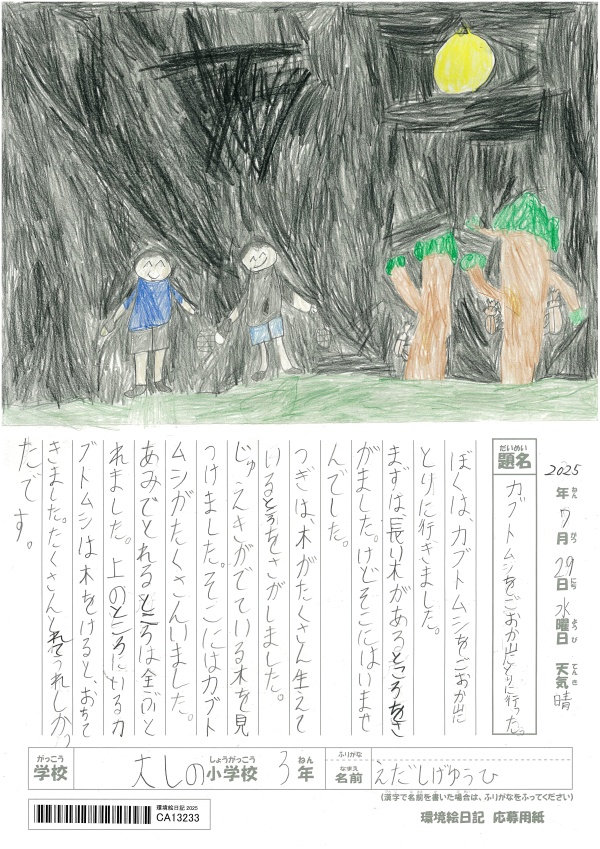 2025年7月29日水曜日 天気 晴
ねん がつ にち ようび てんき
だいめい
題名
カブトムシをごおか山とりに行った。
ぼくは、カブトムシをごおか山に
とりに行きました。
まずは、長い木があるところをさ
がました。けどそこにはいませ
んでした。
つぎは、木がたくさん生えて
いるところをさがしました。
じゅえきがでている木を見
つけました。そこにはカブト
ムシがたくさんいました。
あみでとれるところは全ぶと
れました。上のところにいるカ
ブトムシは木をけると、おちて
きました。たくさんとれてうれしかっ
たです。
がっこう しょうがっこう ねん ふりがな
学校 大しの小学校 3年 なまえ 名前 えだしげゆうひ
(漢字で名前を書いた場合は、ふりがなをふってください)
環境絵日記 2025
CA13233
環境絵日記 応募用紙